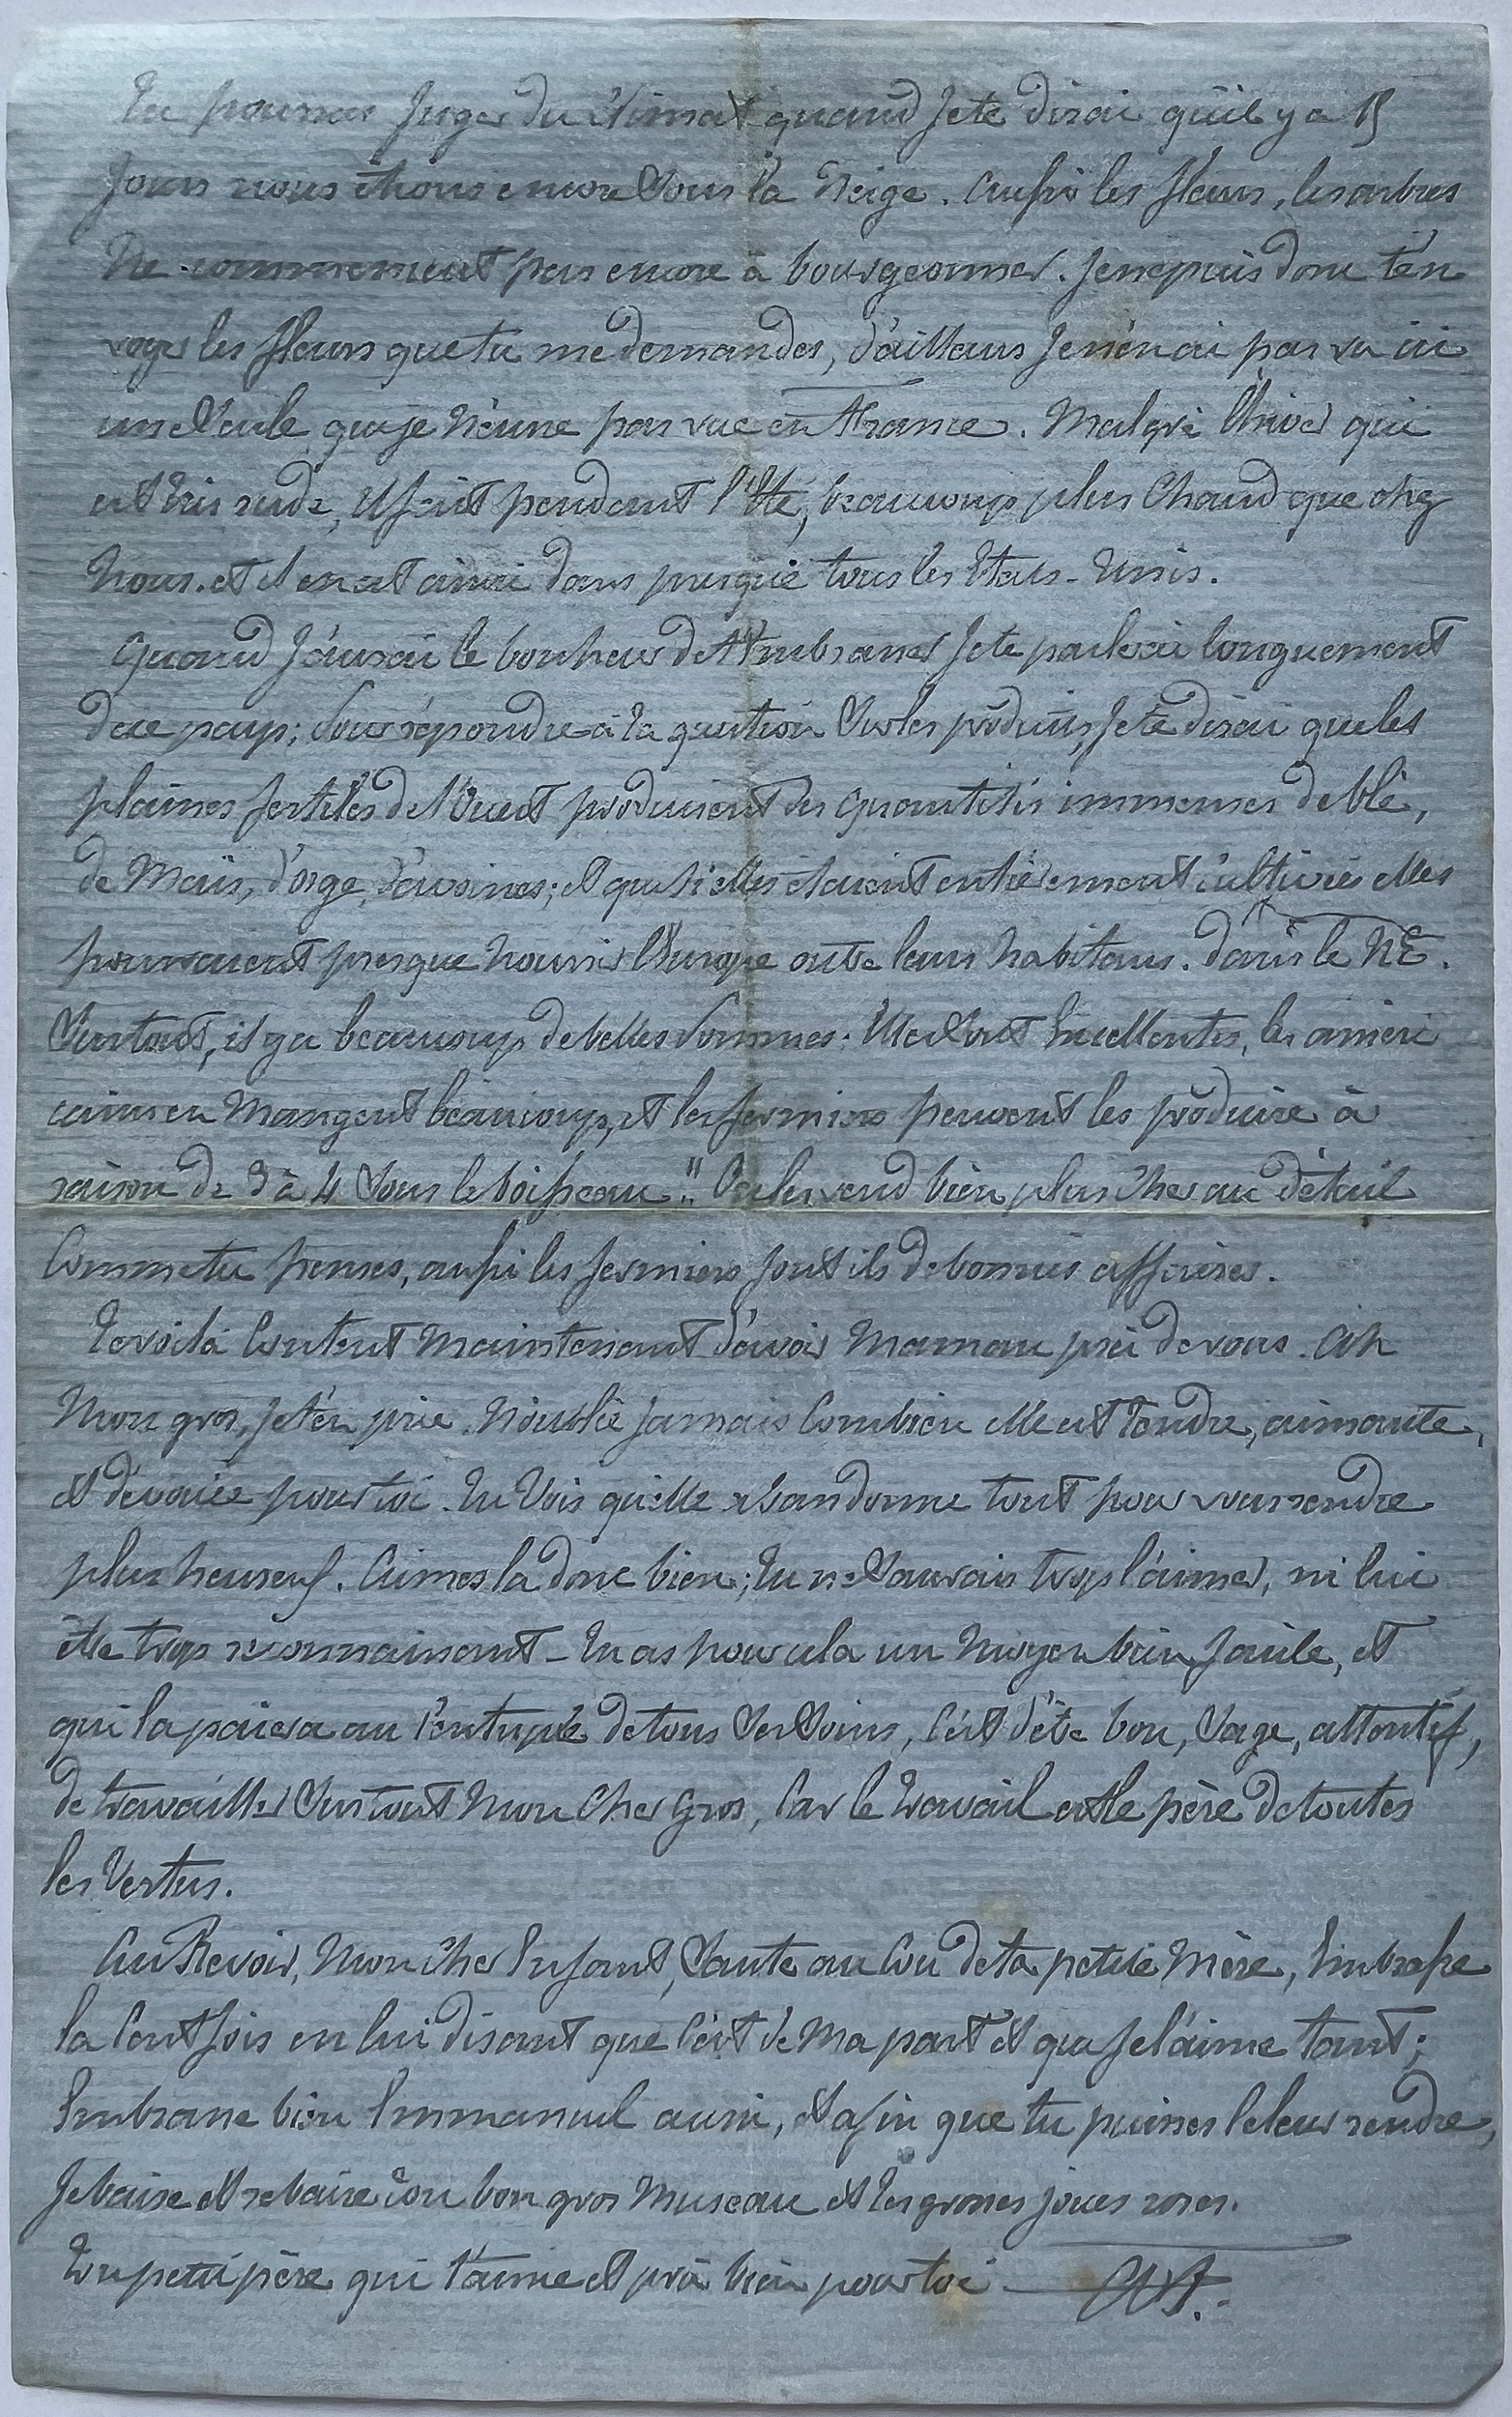 Tu pourras juger du climat quand je te dirai qu'il y a 15
jours nous étions encore sous la neige. Aussi les fleurs, les arbres
ne commencent pas encore à bourgeonner. Je ne puis donc t'en
voyer les fleurs que tu me demandes, d'ailleurs je n'en ai pas vu ici
une seule que je n'eusse pas vue en France. Malgré l'hiver qui
est très rude, il fait pendant l'Eté, beaucoup plus chaud que chez
nous. et il en est ainsi dans presque tous les Etats-Unis.
Quand j'aurai le bonheur de t'embrasser je te parlerai longuement
de ce pays; pour répondre à ta question sur les produits, je te dirai que les
plaines fertiles de l'Ouest produisent des quantités immenses de blé,
de Maïs, d'orge, d'avoines; et que si elles étaient entièrement cultivées elles
pourraient presque nourrir l'Europe outre leurs habitans. dans le NE.
surtout, il y a beaucoup de belles pommes: Elles sont Excellentes, les améri
cains en mangent beaucoup, et les fermiers peuvent les produire à
raison de 3 à 4 sous le boisseau. On les vend bien plus cher au détail
comme tu penses, aussi les fermiers font ils de bonnes affaires.
Te voilà content maintenant d'avoir Maman près de vous. Ah
mon gros, je t'en prie. N'oublie jamais combien elle est tendre, aimante,
et dévouée pour toi. Tu vois qu'elle abandonne tout pour vous rendre
plus heureux. Aimes la donc bien; tu ne saurais trop l'aimer, ni lui
être trop reconnaissant - Tu as pour cela un moyen bien facile, et
qui la paiera au centuple de tous ses soins, c'est d'être bon, sage, attentif,
de travailler surtout mon cher gros, car le travail est le père de toutes
les vertus.
Au Revoir, mon cher Enfant, saute au cou de ta petite mère, Embrasse
la cent fois en lui disant que c'est de ma part et que je l'aime tant;
Embrasse bien Emmanuel aussi, et afin que tu puisses le leur rendre,
je baise et rebaise ton bon gros museau et tes grosses joues roses.
Ton petit père qui t'aime et prie bien pour toi